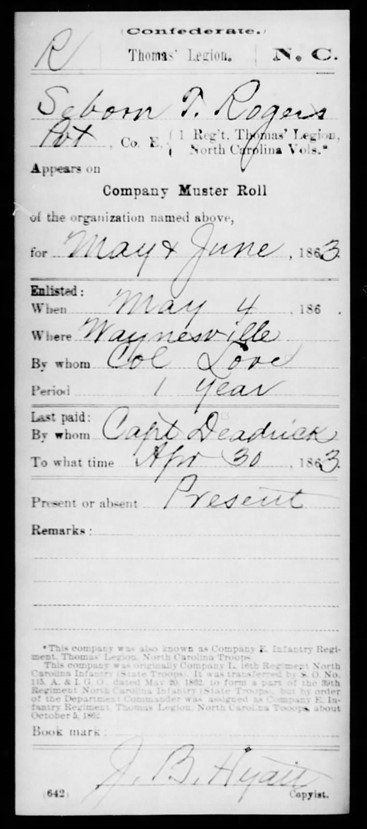 (Confederate.)
R Thomas' Legion. N. C.
Seborn T. Rogers
Pvt, Co. E, { 1 Reg't, Thomas' Legion,
North Carolina Vols.*
Appears on
Company Muster Roll
of the organization named above,
for May & June, 1863.
Enlisted:
When May 4, 186 .
Where Waynesville
By whom Col Love
Period 1 year
Last paid:
By whom Capt Deadrick
To what time Apr 30, 1863.
Present or absent Present
Remarks:
*This company was also known as Company E, Infantry Regi-
ment, Thomas' Legion, North Carolina Troops.
This company was originally Company L, 16th Regiment North
Carolina Infantry (State Troops). It was transferred by S. O. No.
115, A. & I. G. O., dated May 20, 1862, to form a part of the 39th
Regiment North Carolina Infantry (State Troops), but by order
of the Department Commander was assigned as Company E, In-
fantry Regiment, Thomas Legion, North Carolina Troops, about
October 5, 1862.
Book mark:
J. B. Hyatt
(642) Copyist.